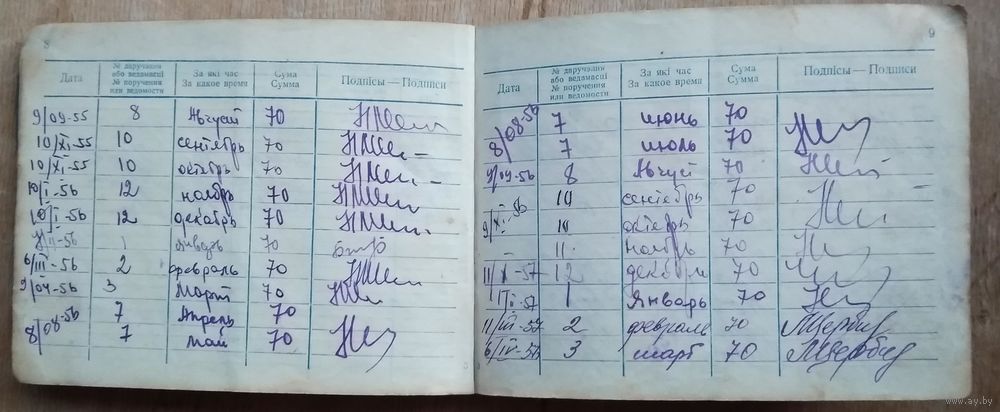 8
Дата № даручэння або ведамасці № поручения или ведомости За які час За какое время Сума Сумма Подпісы — Подписи
9/09-55 8 Август 70
10/XI-55 10 сентябрь 70
10/XI-55 10 октябрь 70
10/I-56 12 ноябрь 70
10/I-56 12 декабрь 70
II-56 1 январь 70
6/III-56 2 февраль 70
9/04-56 3 Март 70
8/08-56 7 Апрель 70
7 май 70
9
Дата № даручэння або ведамасці № поручения или ведомости За які час За какое время Сума Сумма Подпісы — Подписи
8/08-56 7 июнь 70
7 июль 70
9/09-56 8 Август 70
9/XI-56 10 сентябрь 70
10 октябрь 70
- 11 ноябрь 70
12 декабрь 70
1 Январь 70
11/III-57 2 февраль 70
6/IV-56 3 март 70
www.ay.by